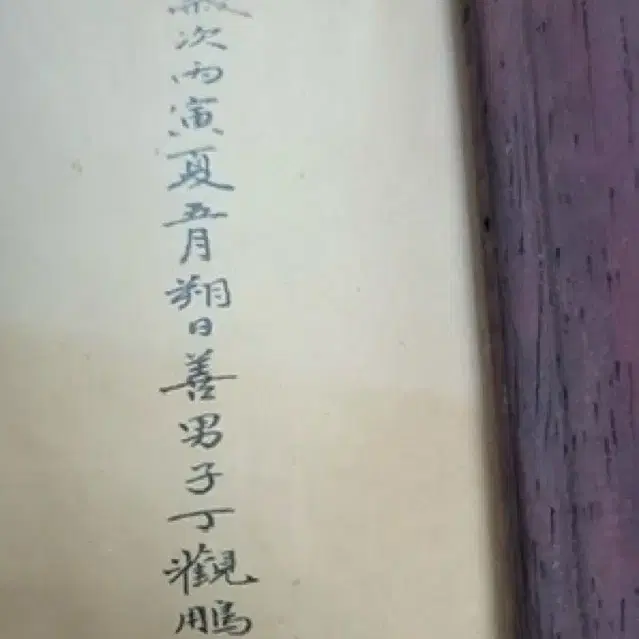 歲次丙寅夏五月朔日善男子丁觀鵬